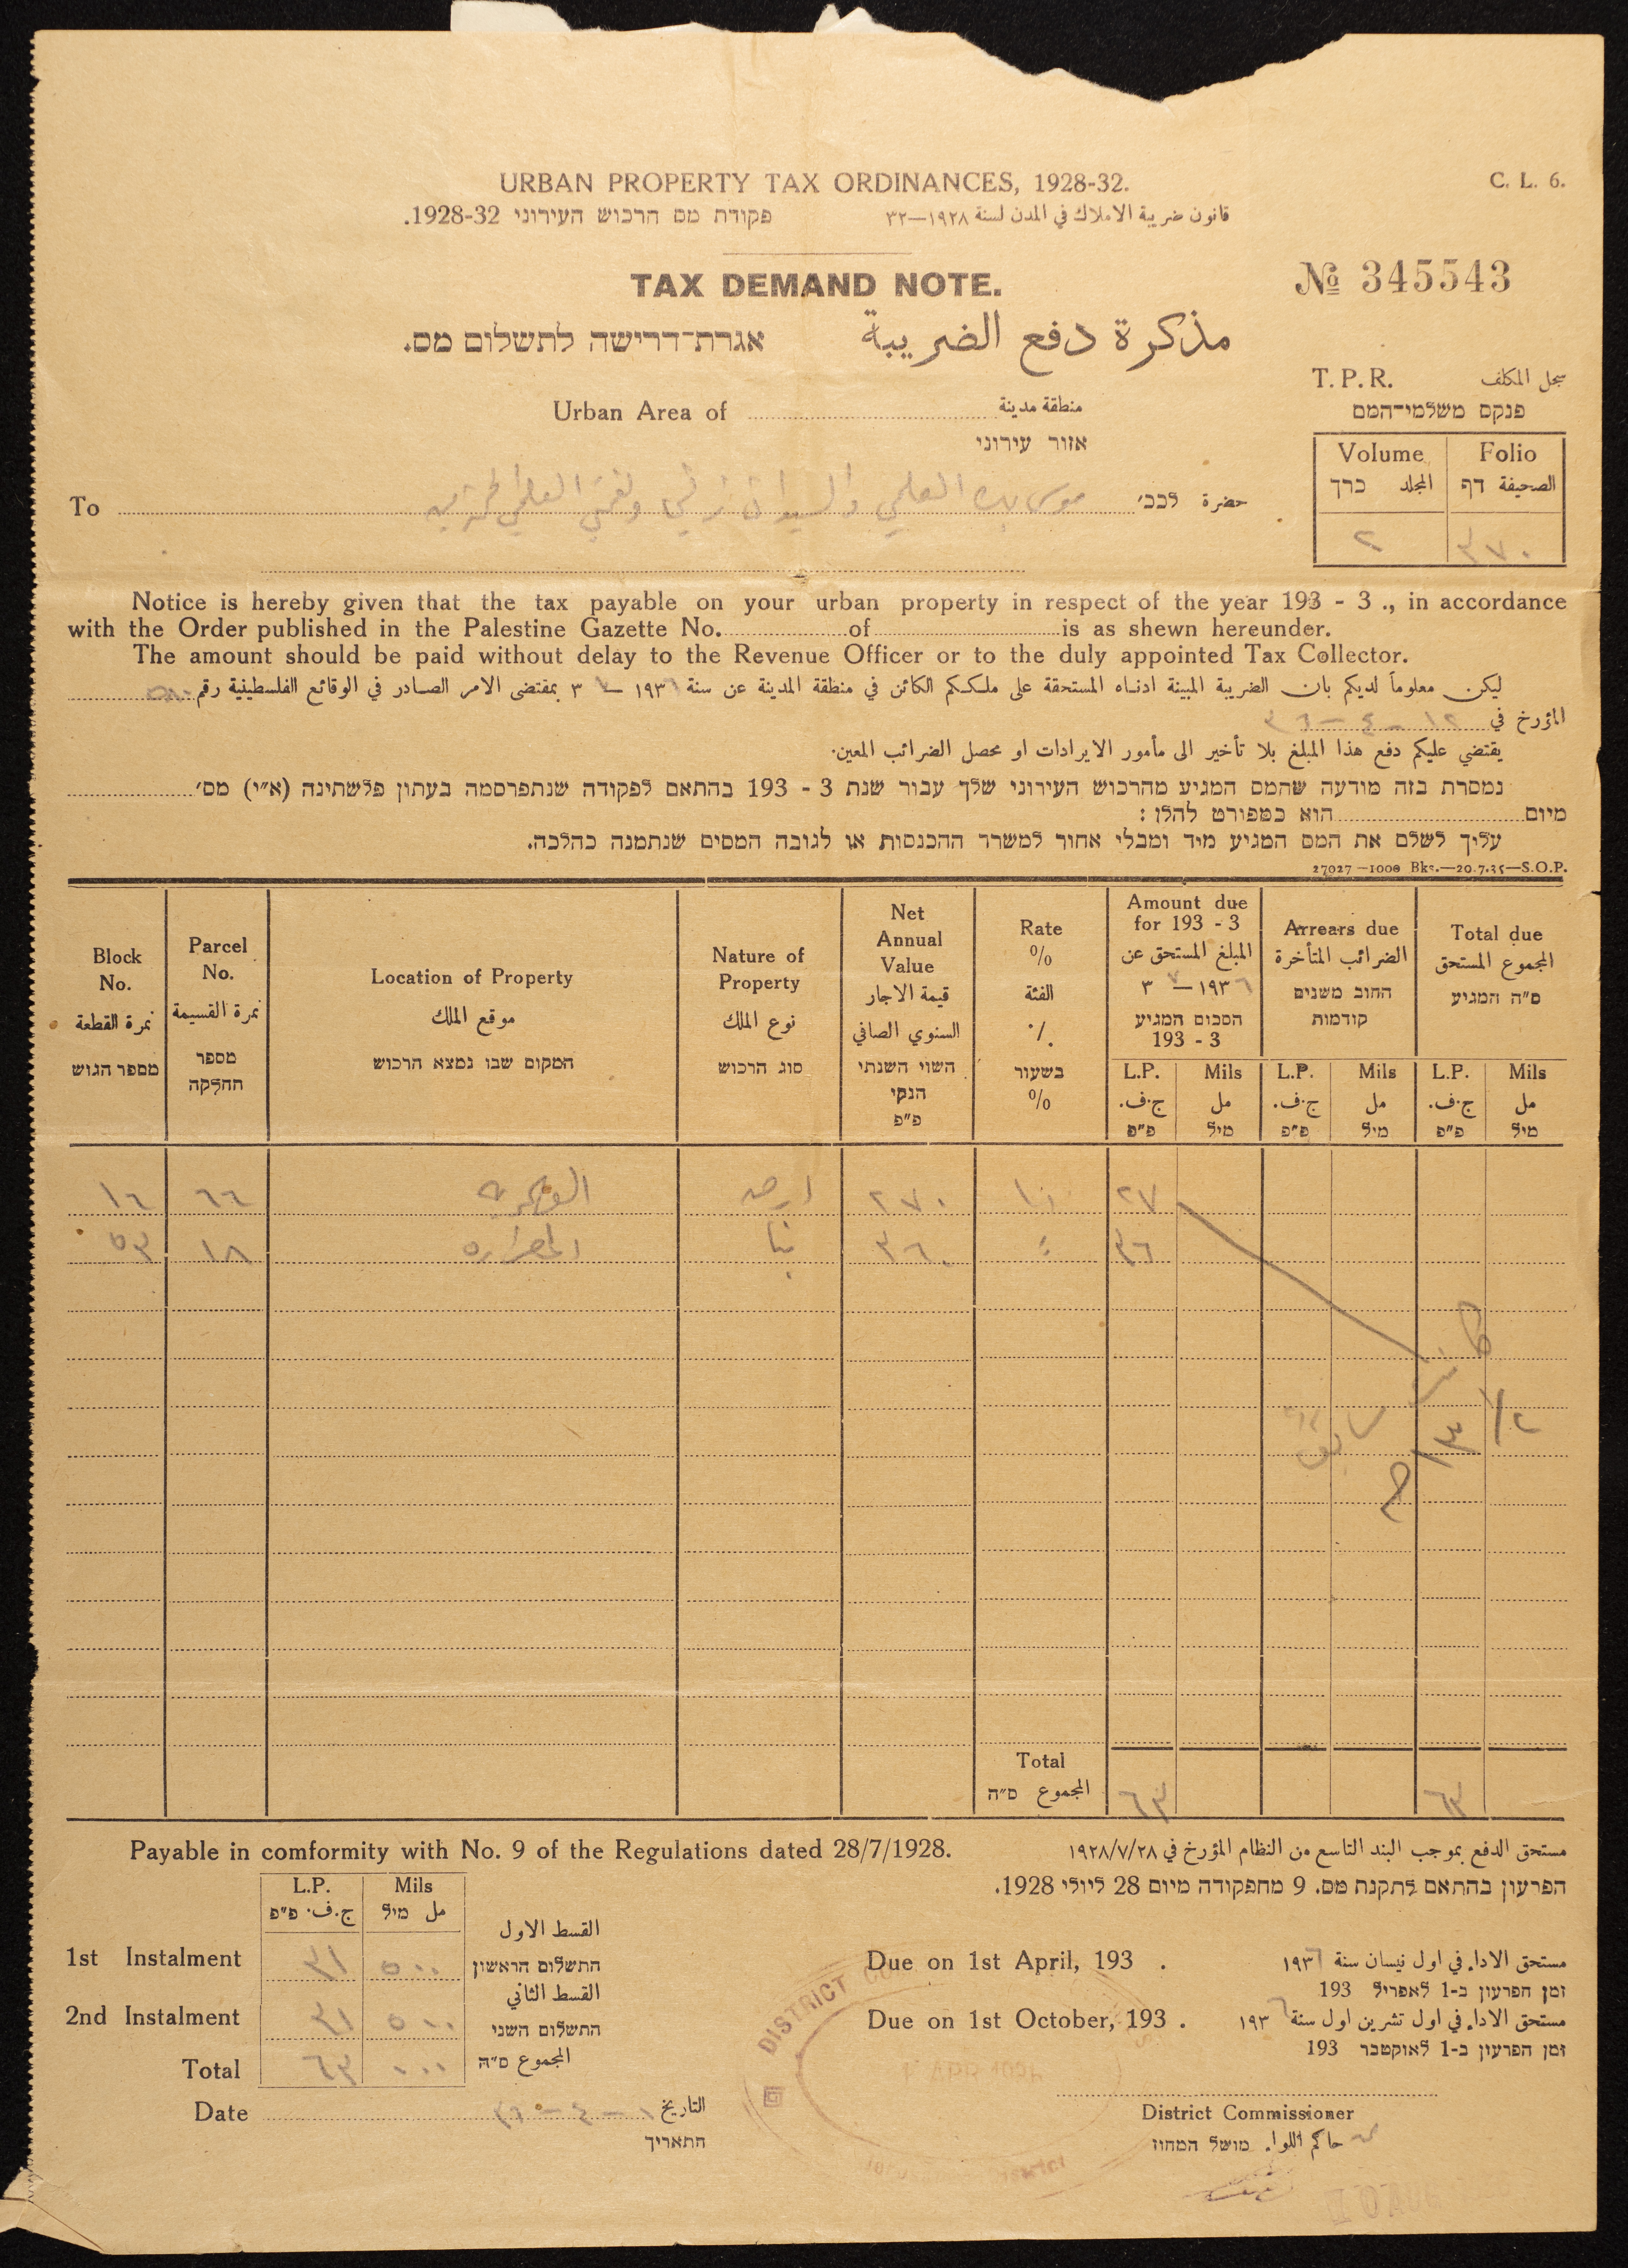 URBAN PROPERTY TAX ORDINANCES, 1928-32.
C. L. 6.
قانون ضريبة الاملاك في المدن لسنة ١٩٢٨—٣٢
פקודת מס הרכוש העירוני 1928-32.
TAX DEMAND NOTE.
№ 345543
مذكرة دفع الضريبة
אגרת־דרישה לתשלום מס.
T.P.R. سجل المكلف
פנקס משלמי־המס
Urban Area of منطقة مدينة
אזור עירוני
Volume Folio
المجلد כרך الصحيفة דף
٢ ٣٧٠
To حضرة לכב׳ موسى العلمي العلمي
Notice is hereby given that the tax payable on your urban property in respect of the year 193 - 3 ., in accordance
with the Order published in the Palestine Gazette No. of is as shewn hereunder.
The amount should be paid without delay to the Revenue Officer or to the duly appointed Tax Collector.
ليكن معلوماً لديكم بان الضريبة المبينة ادناه المستحقة على ملككم الكائن في منطقة المدينة عن سنة ١٩٣٦ — ٧ ٣ بمقتضى الامر الصادر في الوقائع الفلسطينية رقم ٥٨٠
المؤرخ في ١٢ - ٤ - ٣٦
يقتضي عليكم دفع هذا المبلغ بلا تأخير الى مأمور الايرادات او محصل الضرائب المعين.
נמסרת בזה מודעה שהמס המגיע מהרכוש העירוני שלך עבור שנת 3 - 193 בהתאם לפקודה שנתפרסמה בעתון פלשתינה (א״י) מס׳
מיום הוא כמפורט להלן :
עליך לשלם את המס המגיע מיד ומבלי אחור למשרד ההכנסות או לגובה המסים שנתמנה כהלכה.
27027—1000 Bks.—20.7.35—S.O.P.
Block No. نمرة القطعة מספר הגוש
Parcel No. نمرة القسيمة מספר החלקה
Location of Property موقع الملك המקום שבו נמצא הרכוש
Nature of Property نوع الملك סוג הרכוש
Net Annual Value قيمة الاجار السنوي الصافي השוי השנתי הנקי פ״פ
Rate % الفئة ٪ בשעור %
Amount due for 193 - 3 المبلغ المستحق عن ١٩٣٦ — ٧ ٣ הסכום המגיע 193 - 3
Arrears due الضرائب المتأخرة החוב משנים קודמות
Total due المجموع المستحق ס״ה המגיע
L.P. Mils L.P. Mils L.P. Mils
ج.ف. مل ج.ف. مل ج.ف. مل
פ״פ מיל פ״פ מיל פ״פ מיל
١٦ ٦٦ ارض ٢٧٠ ١٠ ٢٧
٥٣ ١٨ المصراره بنا ٣٦٠ ٣٦
Total
المجموع ס״ה ٦٣ ٦٣
Payable in comformity with No. 9 of the Regulations dated 28/7/1928.
مستحق الدفع بموجب البند التاسع من النظام المؤرخ في ١٩٢٨/٧/٢٨
הפרעון בהתאם לתקנת מס. 9 מהפקודה מיום 28 ליולי 1928.
L.P. Mils
ج.ف. פ״פ مل מיל
القسط الاول
1st Instalment ٣١ ٥٠٠ התשלום הראשון
القسط الثاني
2nd Instalment ٣١ ٥٠٠ התשלום השני
Total ٦٣ ٠٠٠ المجموع ס״ה
Due on 1st April, 193 .
مستحق الاداء في اول نيسان سنة ١٩٣٦
זמן הפרעון ב-1 לאפריל 193
Due on 1st October, 193 .
مستحق الاداء في اول تشرين اول سنة ١٩٣٦
זמן הפרעון ב-1 לאוקטבר 193
Date ١ - ٤ - ٣٦ التاريخ
התאריך
DISTRICT
District Commissioner
حاكم اللواء. מושל המחוז